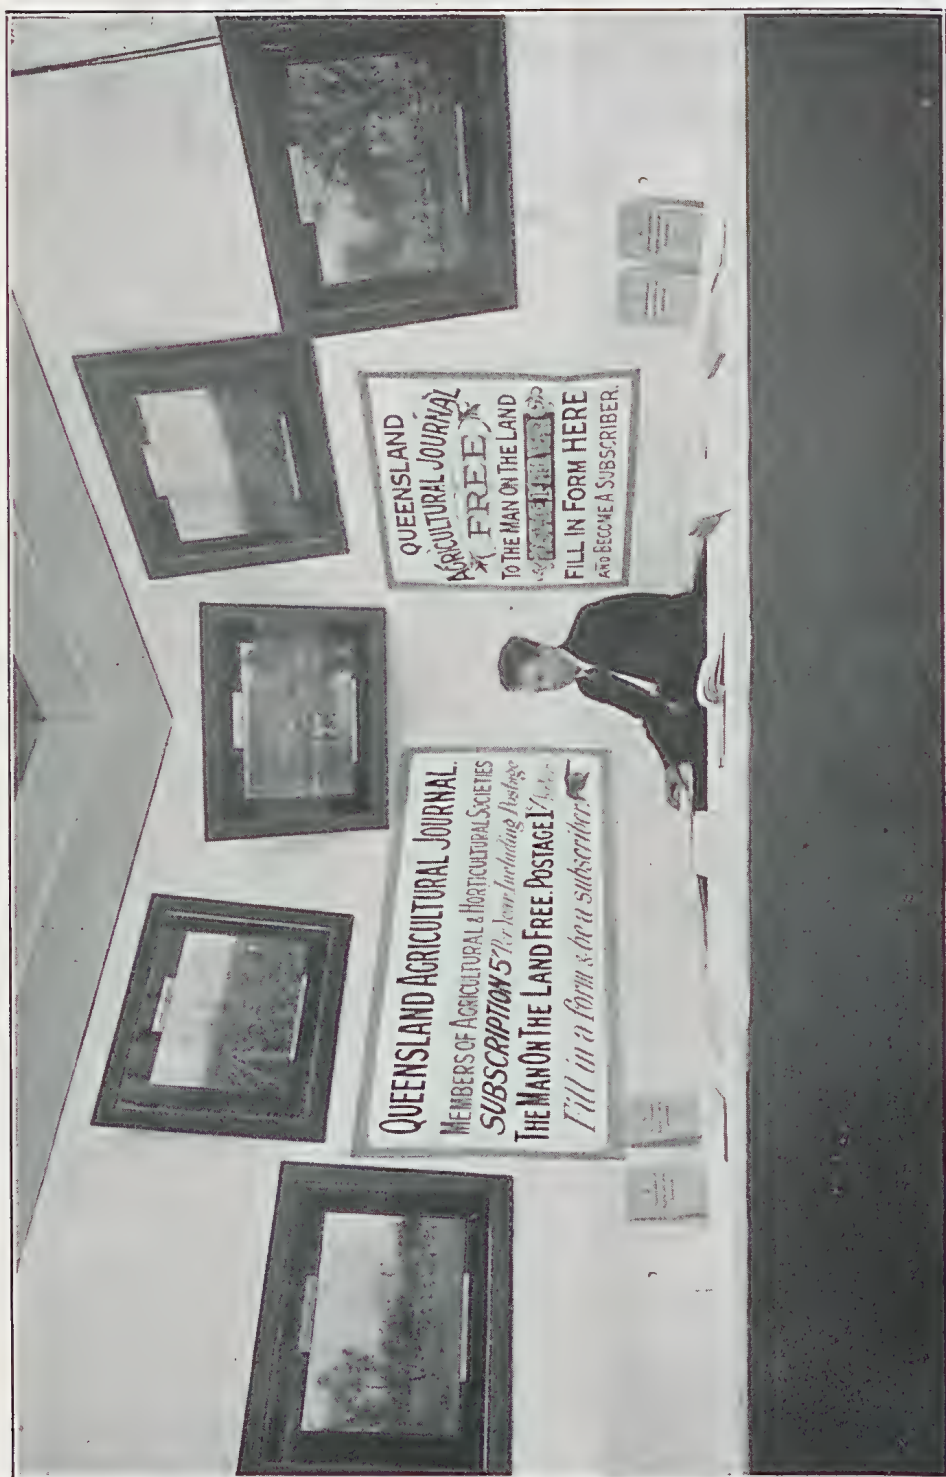 QUEENSLAND AGRICULTURAL JOURNAL.
MEMBERS OF AGRICULTURAL & HORTICULTURAL SOCIETIES
SUBSCRIPTION 5/- Per Year Including Postage
THE MAN ON THE LAND FREE. POSTAGE 1/-
Fill in a form & be a subscriber.
QUEENSLAND
AGRICULTURAL JOURNAL
FREE
TO THE MAN ON THE LAND
FILL IN FORM HERE
AND BECOME A SUBSCRIBER.